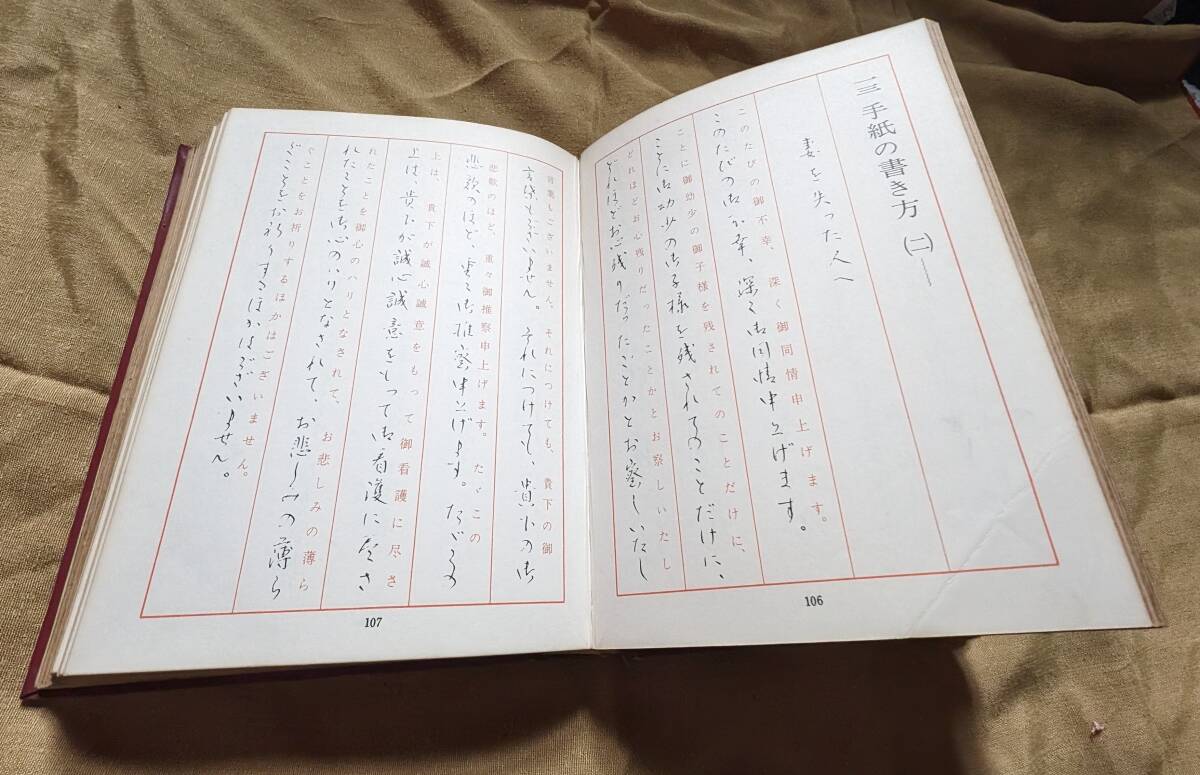 一三 手紙の書き方 (二)―
妻を失った人へ
このたびの御不幸、深く御同情申上げます。
このたびの御不幸、深く御同情申上げます。
ことに御幼少の御子様を残されてのことだけに、
ことに御幼少の御子様を残されてのことだけに、
どれほどお心残りだったことかとお察しいたし
どれほどお心残りだったことかとお察しいたし
106
言葉もございません。それにつけても、貴下の御
言葉もございません。それにつけても、貴下の御
悲歎のほど、重々御推察申上げます。たゞこの
悲歎のほど、重々御推察申上げます。たゞこの
上は、貴下が誠心誠意をもって御看護に尽さ
上は、貴下が誠心誠意をもって御看護に尽さ
れたことを御心のハリとなされて、お悲しみの薄ら
れたことを御心のハリとなされて、お悲しみの薄ら
ぐことをお祈りするほかはございません。
ぐことをお祈りするほかはございません。
107